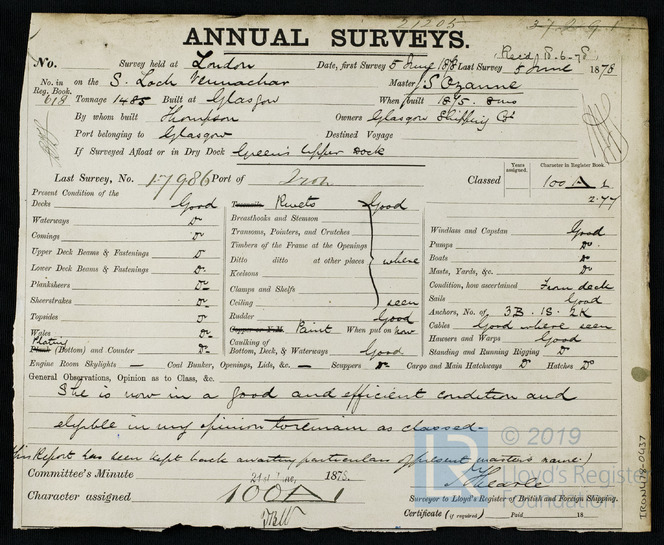 21205
37291
ANNUAL SURVEYS.
Recd 18.6.78
No. Survey held at London Date, first Survey 5 June 1878 Last Survey 5 June 1878
No. in Reg. Book. 618 on the S. Loch Vennachar Master S Ozanne
Tonnage 1485 Built at Glasgow When built 1875. 8mo
By whom built Thompson Owners Glasgow Shipping Co
Port belonging to Glasgow Destined Voyage
If Surveyed Afloat or in Dry Dock Green's Upper Dock
Last Survey, No. 17986 Port of Iron Classed
Years assigned. Character in Register Book.
100 A 1
2.77
Present Condition of the
Decks Good
Waterways Do
Comings Do
Upper Deck Beams & Fastenings Do
Lower Deck Beams & Fastenings Do
Planksheers Do
Sheerstrakes Do
Topsides Do
Wales Do
Plating
Plank (Bottom) and Counter Do
Treenails Rivets Good
Breasthooks and Stemson
Transoms, Pointers, and Crutches
Timbers of the Frame at the Openings
Ditto ditto at other places where
Keelsons
Clamps and Shelfs
Ceiling seen
Rudder Good
Copper or Y.M. Paint When put on now
Caulking of
Bottom, Deck, & Waterways Good
Windlass and Capstan Good
Pumps Do
Boats Do
Masts, Yards, &c. Do
Condition, how ascertained From deck
Sails Good
Anchors, No. of 3B. 1S. 2K
Cables Good where seen
Hawsers and Warps Good
Standing and Running Rigging Do
Engine Room Skylights — Coal Bunker, Openings, Lids, &c. — Scuppers Do Cargo and Main Hatchways Do Hatches Do
General Observations, Opinion as to Class, &c.
She is now in a good and efficient condition and
eligible in my opinion to remain as classed.
(This Report has been kept back awaiting particulars of present master's name.)
Committee's Minute 21st June, 1878.
Character assigned 100 A 1
Surveyor to Lloyd's Register of British and Foreign Shipping.
Certificate (if required) Paid 18
© 2019
Lloyd's Register
Foundation
IRON478-0437